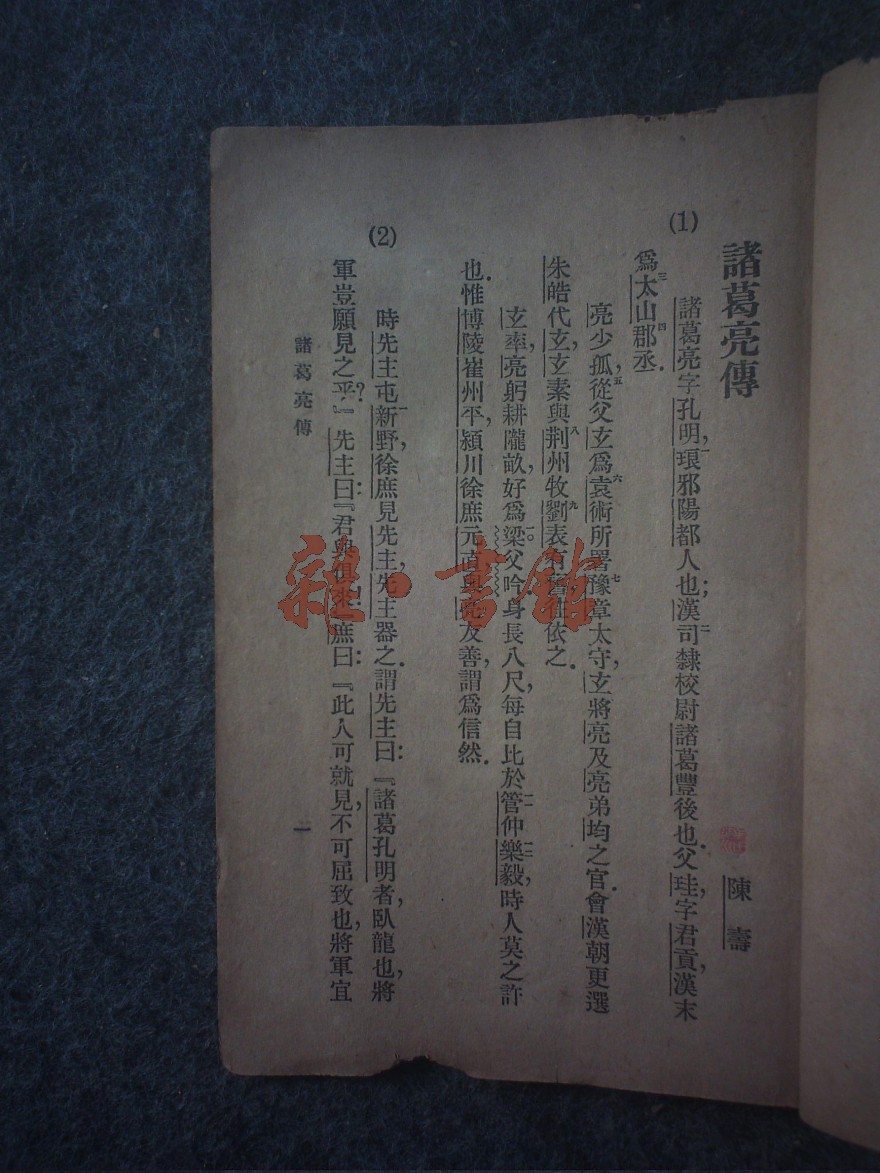 諸葛亮傳
陳壽
(1)
諸葛亮字孔明,一琅邪陽都人也;漢司二隸校尉諸葛豐後也.父珪,字君貢,漢末
爲太三山郡四丞.
亮少孤,從五父玄爲袁六術所署豫七章太守,玄將亮及亮弟均之官.會漢朝更選
朱皓代玄,玄素與荆八州牧劉九表有舊往依之.
玄率,亮躬耕隴畝,好爲梁父吟.身長八尺,每自比於管一一仲樂一二毅,時人莫之許
也.惟博陵崔州平,潁川徐庶元直與亮友善,謂爲信然.
(2)
時先主屯新一野,徐庶見先主,先主器之.謂先主曰:『諸葛孔明者,臥龍也,將
軍豈願見之乎?』先主曰:『君與俱來』庶曰:『此人可就見,不可屈致也,將軍宜
諸葛亮傳
雜·書館